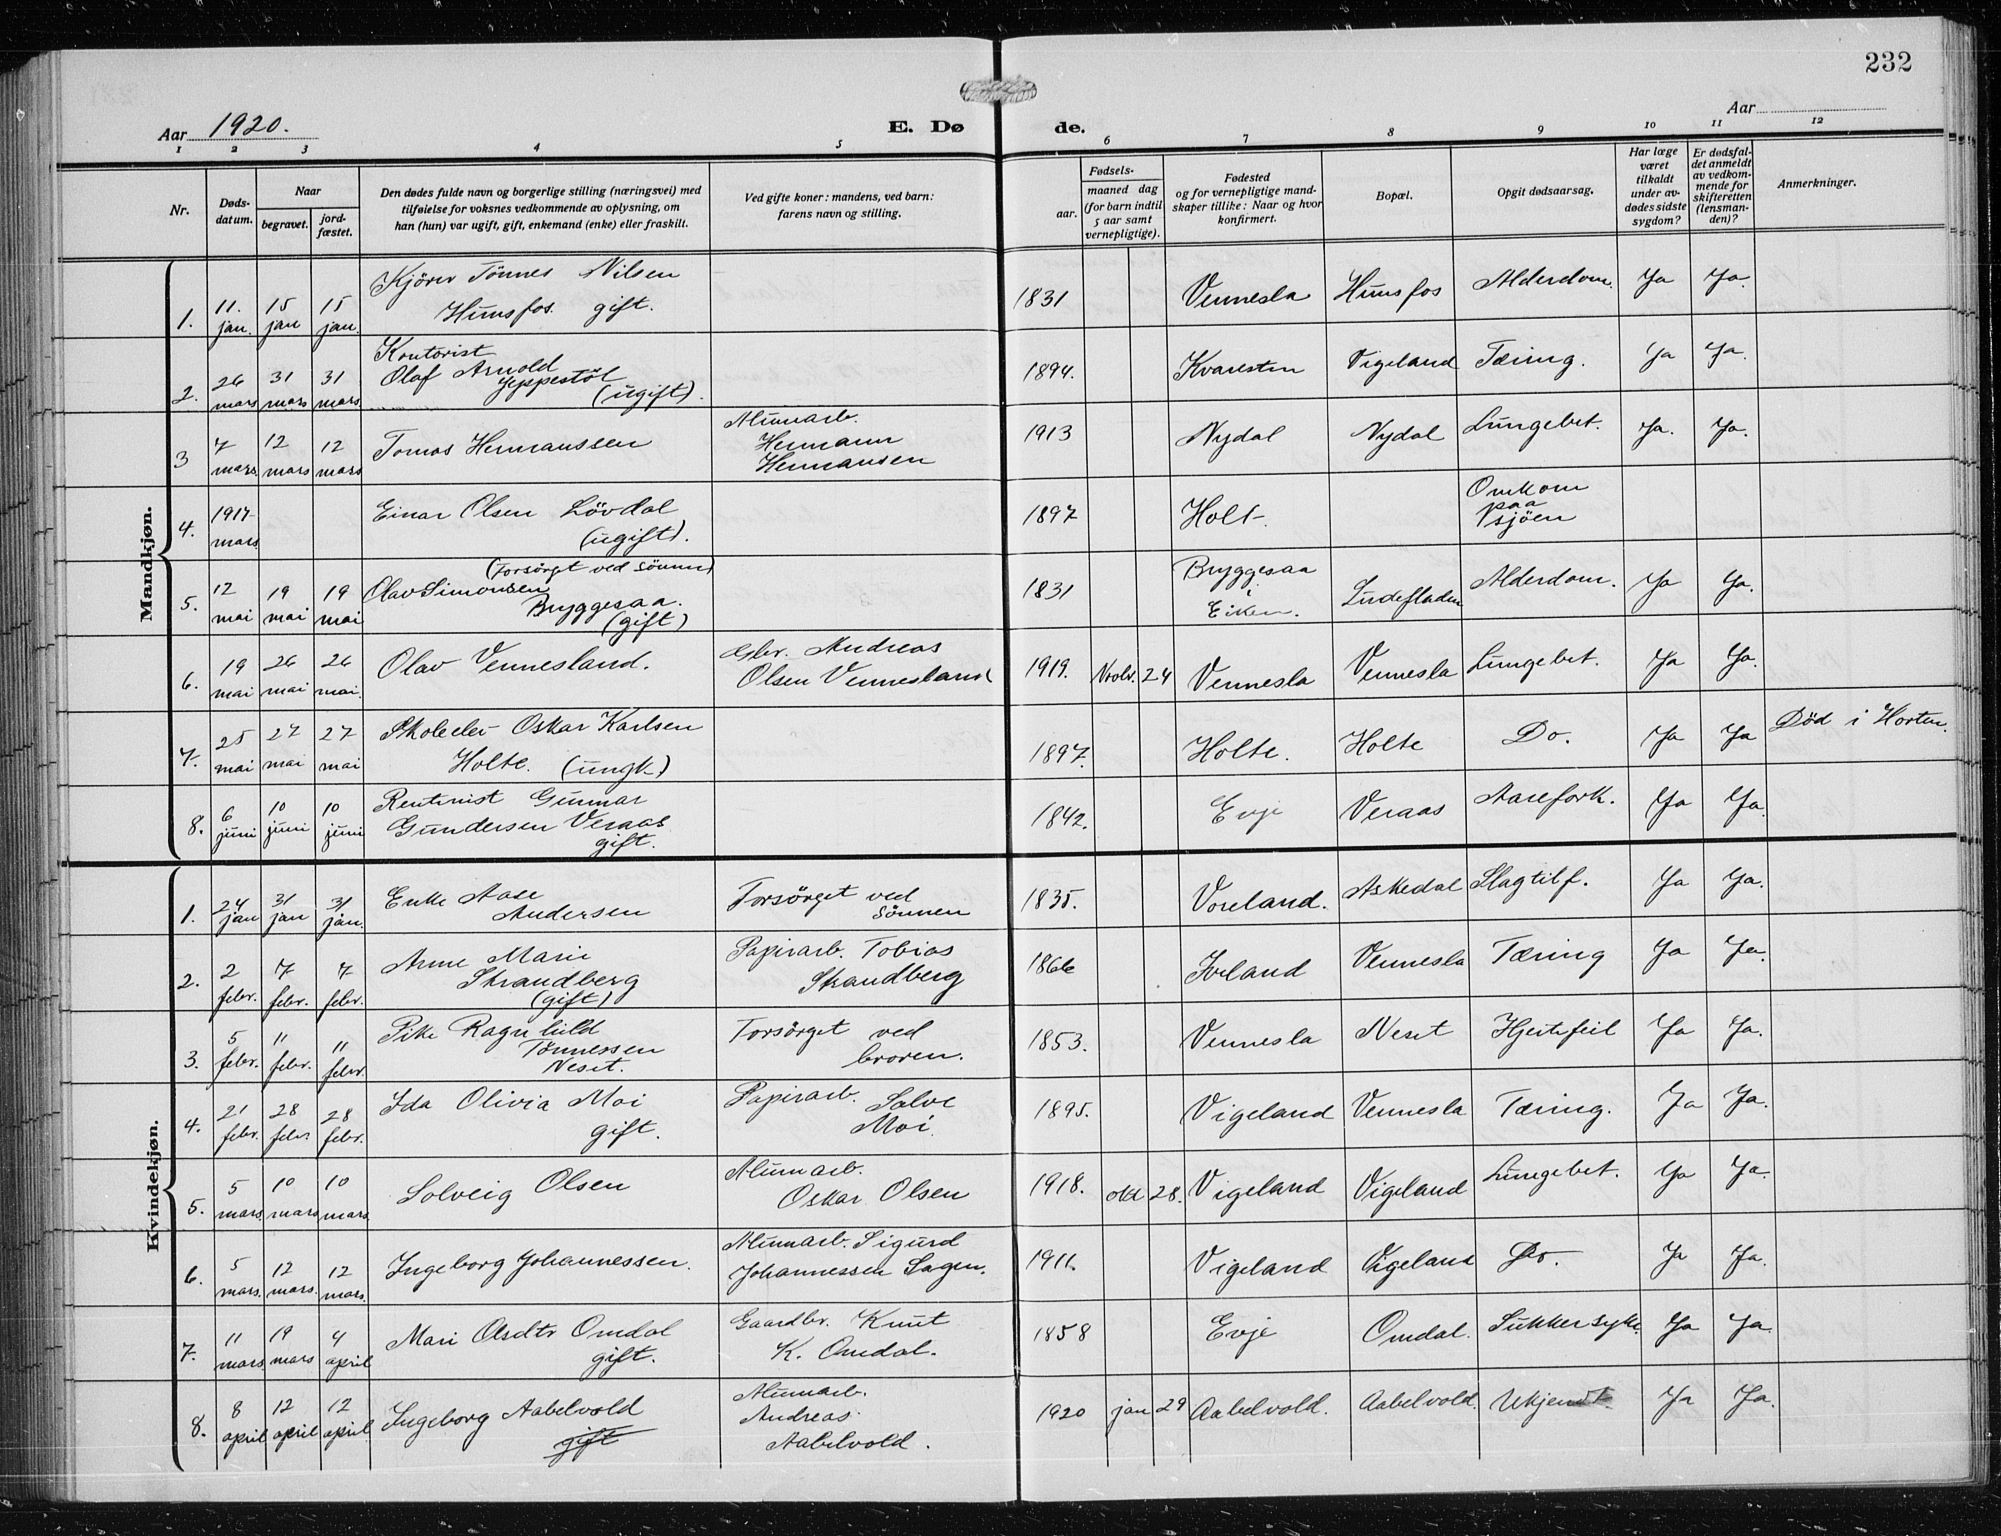 232
Aar 1920.
E. Dø de.
Aar
1 2 3 4 5 6 7 8 9 10 11 12
Nr.
Døds-
datum.
Naar
begravet.
jord-
fæstet.
Den dødes fulde navn og borgerlige stilling (næringsvei) med
tilføielse for voksnes vedkommende av oplysning, om
han (hun) var ugift, gift, enkemand (enke) eller fraskilt.
Ved gifte koner: mandens, ved barn:
farens navn og stilling.
Fødsels-
aar.
maaned dag
(for barn indtil
5 aar samt
vernepligtige).
Fødested
og for vernepligtige mand-
skaper tillike: Naar og hvor
konfirmert.
Bopæl.
Opgit dødsaarsag.
Har læge
været
tilkaldt
under av-
dødes sidste
sygdom?
Er dødsfal-
det anmeldt
av vedkom-
mende for
skifteretten
(lensman-
den)?
Anmerkninger.
Mandkjøn.
1. 11. jan. 15 jan 15 jan. Kjörer Tönnes Nilsen
Hunsfos. gift. 1831 Vennesla Hunsfos Alderdom. Ja Ja.
2. 26 mars 31 mars 31 mars. Kontorist
Olaf Arnold
Jeppestöl
(ugift). 1894. Kvarestein Vigeland Tæring. Ja Ja.
3 7 mars 12 mars 12 mars Tomas Hermanssen Alumarb.
Hermann
Hermansen 1913 Nydal Nydal Lungebet. Ja. Ja.
4. 1917 mars. Einar Olsen Lövdal
(ugift). 1897 Holt. Omkom
paa
sjöen
5. 12 mai 19 mai 19 mai (Forsörget ved sönnen)
Olav Simonsen
Bryggesaa.
(gift) 1831 Bryggesaa
i
Eiken. Lindefladen Alderdom. Ja Ja.
6. 19 mai 26 mai 26 mai. Olav Vennesland. Gbr. Andreas
Olsen Vennesland 1919. Novbr. 24 Vennesla Vennesla Lungebet. Ja Ja.
7. 25 mai 27 mai 27 mai Skoleelev Oskar Karlsen
Holte. (ungk) 1897. Holte. Holte Do. Ja Ja Död i Horten.
8. 6 juni 10 juni 10 juni Rentenist Gunnar
Gundersen Veraas
gift. 1842. Evje Veraas Aarefork. Ja Ja.
Kvindekjøn.
1. 24 jan 31 jan 31 jan. Enke Aase
Andersen Forsörget ved
sönnen 1835. Voreland. Askedal Slagtilf. Ja Ja.
2. 2 febr. 7 febr. 7 febr. Anne Marie
Strandberg
(gift) Papirarb. Tobias
Strandberg 1866 Iveland Vennesla Tæring Ja Ja.
3. 5 febr. 11 febr. 11 febr. Pike Ragnhild
Tönnessen
Neset. Forsörget ved
broren. 1853. Vennesla Neset Hjertefeil Ja Ja.
4. 21 febr. 28 febr 28 febr. Ida Olivia Moi
gift. Papirarb. Salve
Moi. 1895. Vigeland Vennesla Tæring. Ja Ja.
5. 5 mars. 10 mars 10 mars. Solveig Olsen Alumarb.
Oskar Olsen 1918. okt 28. Vigeland Vigeland Lungebet. Ja Ja.
6. 5 mars. 12 mars. 12 mars. Ingeborg Johannessen. Alumarb. Sigurd
Johannessen Sagen. 1911. Vigeland Vigeland Do. Ja Ja.
7. 11 mars 19 mars 4 april Mari Olsdtr Omdal
gift. Gaardbr. Knut
K. Omdal. 1858 Evje Omdal. Sukkersyke. Ja Ja.
8. 8 april 12 april 12 april. Ingeborg Aabelvold
gift Alumarb.
Andreas
Aabelvold. 1920 jan 29 Aabelvold. Aabelvold. Ukjendt. Ja Ja.